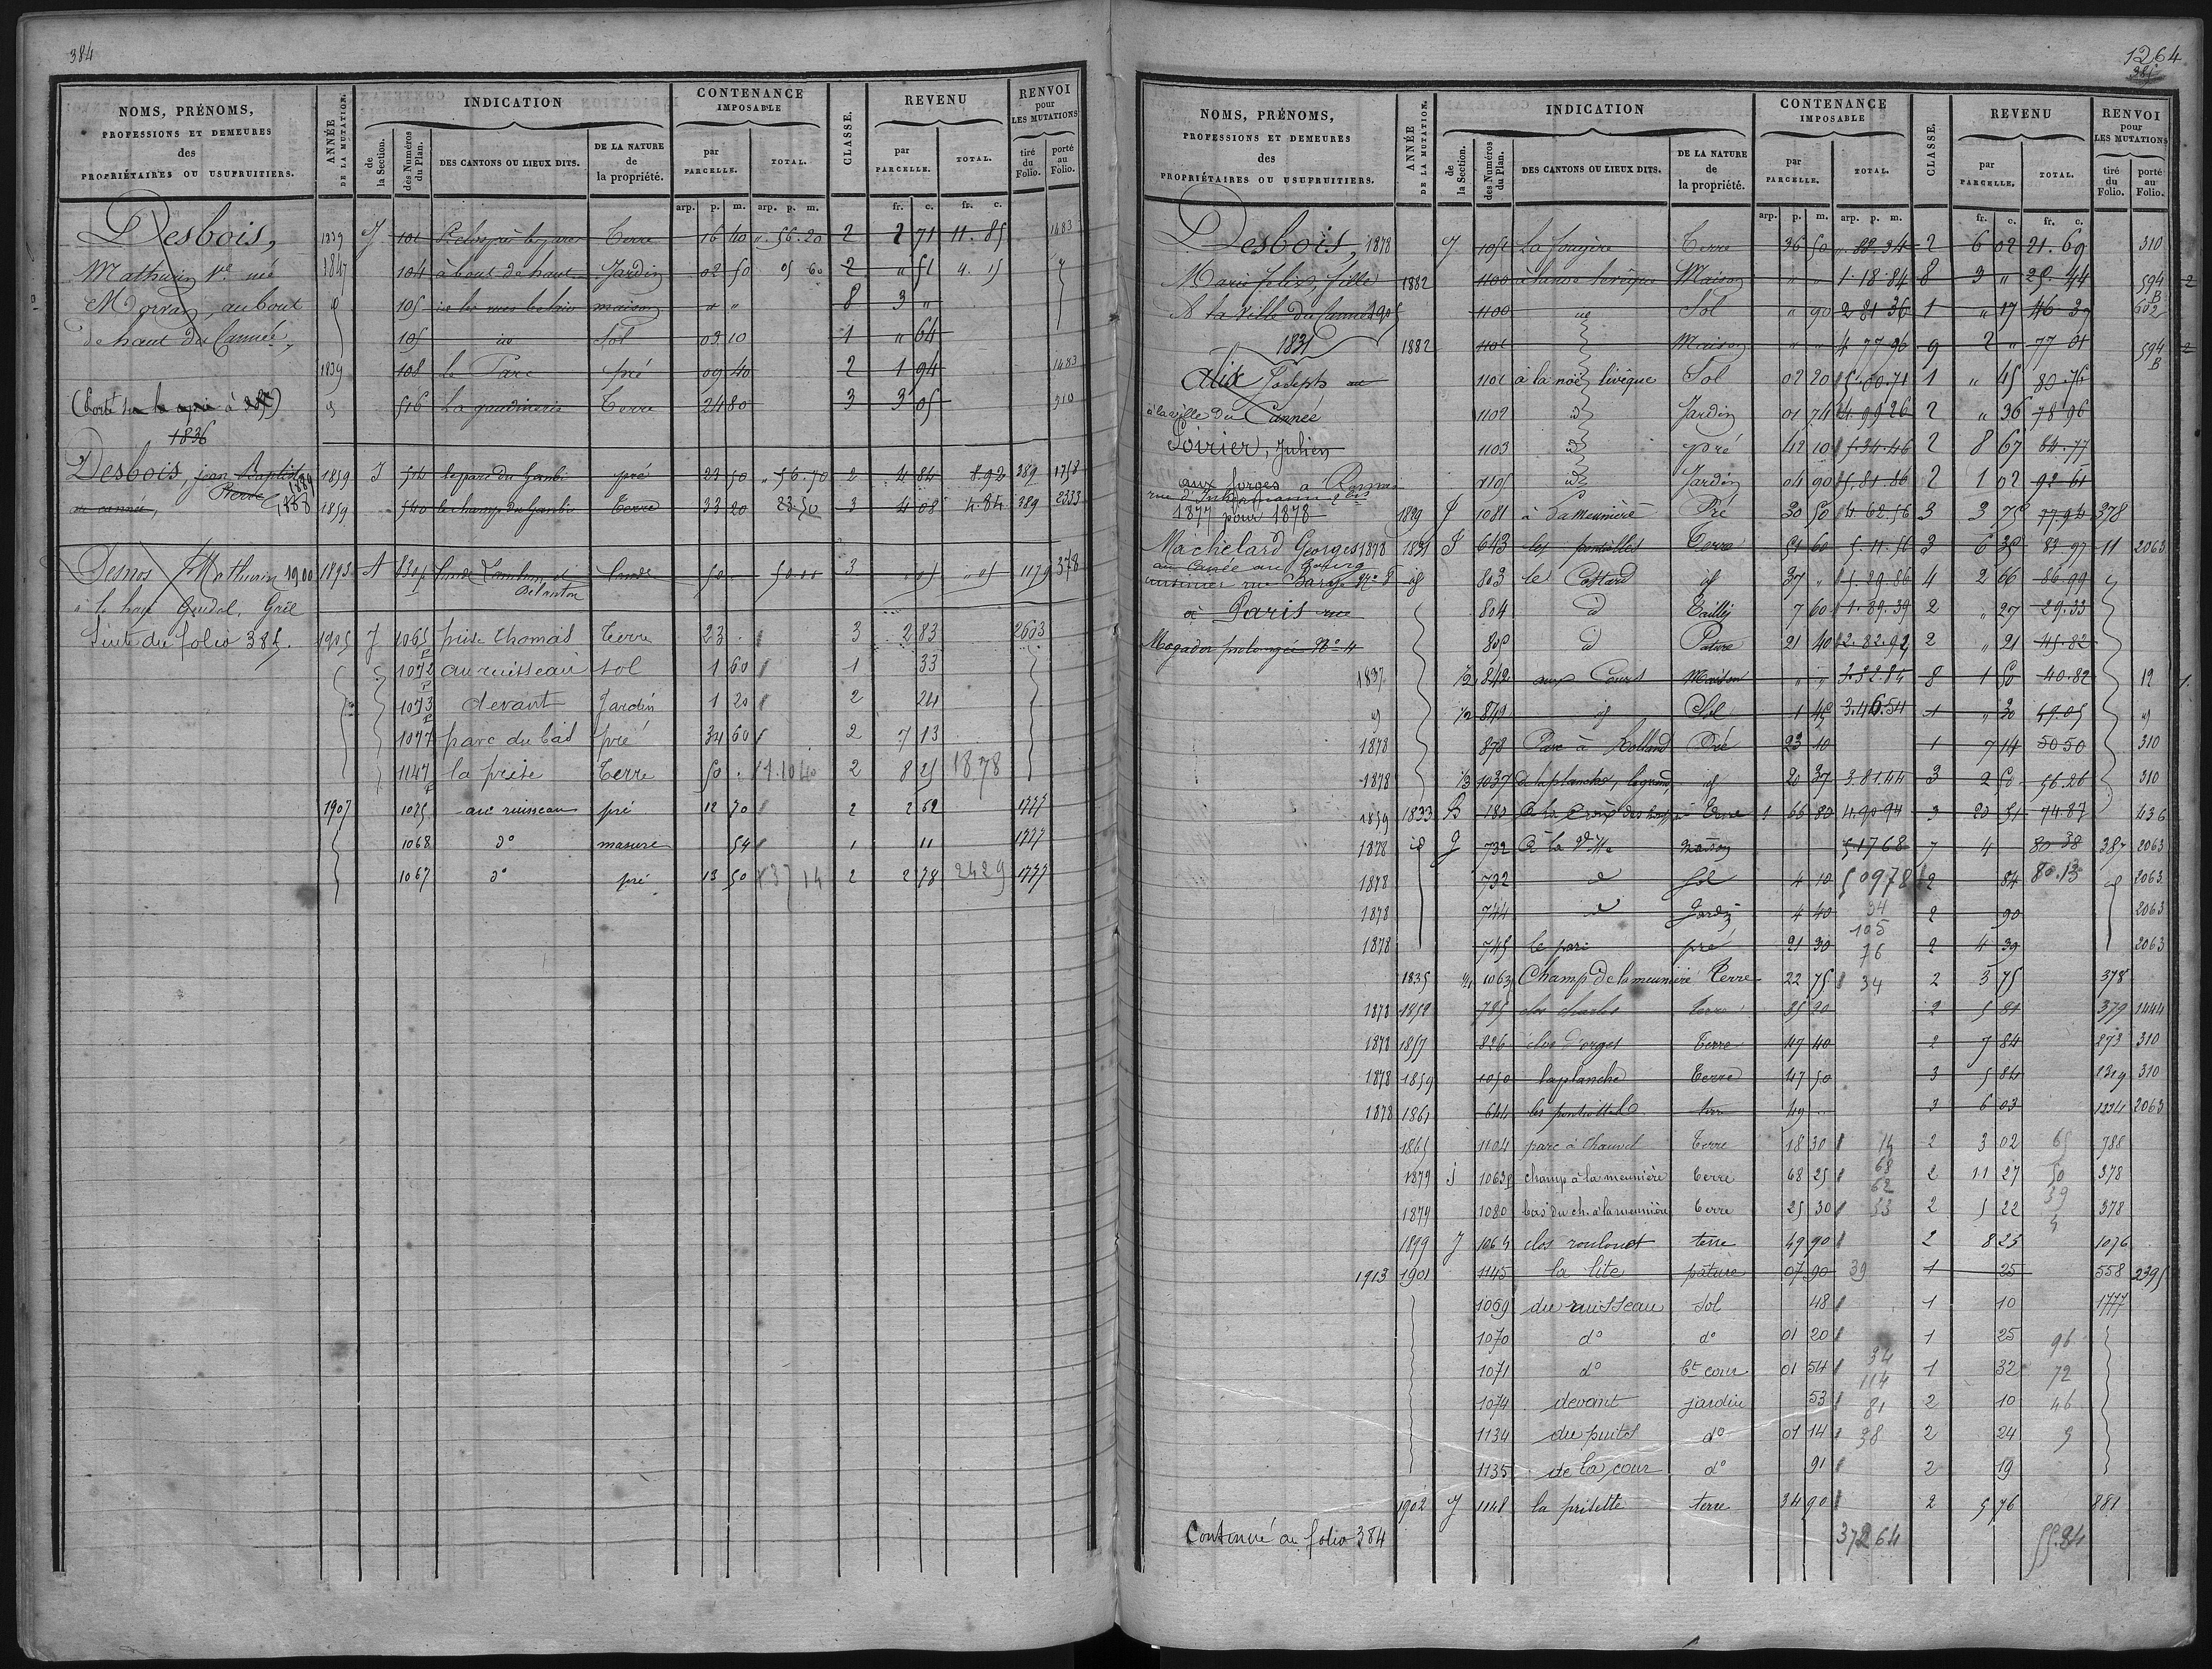 384
NOMS, PRÉNOMS,
PROFESSIONS ET DEMEURES
des
PROPRIÉTAIRES OU USUFRUITIERS.
ANNÉE
DE LA MUTATION.
INDICATION
de
la Section.
des Numéros
du Plan.
DES CANTONS OU LIEUX DITS.
DE LA NATURE
de
la propriété.
CONTENANCE
IMPOSABLE
par
PARCELLE.
TOTAL.
CLASSE.
REVENU
par
PARCELLE.
TOTAL.
RENVOI
pour
LES MUTATIONS
tiré
du
Folio.
porté
au
Folio.
arp. p. m. arp. p. m. fr. c. fr. c.
Desbois,
Mathurin Ve née
Morvan, au bout
de haut du Cannée
1836
1839 J 101 Terre 16 40 56.20 2 2 71 11.85 1483
1847 104 à bout de haut Jardin 02 50 05 60 2 " 51 4.15
id 105 maison " " 8 3 "
105 id Sol 03 10 1 " 64
1839 108 le Parc pré 09 40 2 1 94 1483
id 516 la gaudinerie Terre 24 80 3 3 05 310
Desbois, jean Baptiste
Pierre 1889
1888
1859 J 514 le parc du Gambi pré 23 50 56.70 2 4 84 8.92 389 1758
1859 540 le champ du Gambi Terre 33 20 23.50 3 4 08 4.84 389 2333
Desnos Mathurin 1900
1893 A 830p lande 50 50.00 3 05 05 1179 378
Suite du folio 385.
1905 J 1065p prise Thomas Terre 23 3 2 83 2603
1072p au ruisseau sol 1 60 1 33
1073p devant Jardin 1 20 2 24
1077 parc du bas pré 34 60 2 7 13
1147p la prise Terre 50 1.1040 2 8 25 1878
1907 1075 au ruisseau pré 12 70 2 2 62 1777
1068 do masure 54 1 11 1777
1067 do pré 13 50 137 14 2 2 78 2429 1777
1264
385
NOMS, PRÉNOMS,
PROFESSIONS ET DEMEURES
des
PROPRIÉTAIRES OU USUFRUITIERS.
ANNÉE
DE LA MUTATION.
INDICATION
de
la Section.
des Numéros
du Plan.
DES CANTONS OU LIEUX DITS.
DE LA NATURE
de
la propriété.
CONTENANCE
IMPOSABLE
par
PARCELLE.
TOTAL.
CLASSE.
REVENU
par
PARCELLE.
TOTAL.
RENVOI
pour
LES MUTATIONS
tiré
du
Folio.
porté
au
Folio.
arp. p. m. arp. p. m. fr. c. fr. c.
Desbois, 1878
Marie felix, fille
A la Ville du Cannée 1905
1831
Alix Joseph
à la ville du Cannée
Poirier, Julien
aux forges à
1877 pour 1878
Machelard Georges 1878
au Cannée au bourg
à Paris rue
Mogador prolongée No 4
J 1051 la fougère Terre 36 50 2 6 02 21.69 310
1882 1100 Maison " " 1.18.84 8 3 " 25.44 594 B 2
1100 id Sol " 90 2 81 36 1 " 17 46 39 602
1882 1101 Maison " " 4 77 96 9 2 " 77 01 594 B 2
1101 à la noë livêque Sol 02 20 5.00.71 1 " 45 80.76
1102 id Jardin 01 74 4 99 26 2 " 36 78 96
1103 id pré 42 10 5.34.46 2 8 67 84.77
1105 id Jardin 04 90 5.81.86 2 1 02 92 61
1829 J 1081 à La meunière Pré 30 50 4.62.56 3 3 75 77.94 378
1831 J 643 Terre 51 60 5.11.56 3 6 35 83 97 11 2063
id 803 le Costard id 37 " 5.29.86 4 2 66 86.99 id
804 id Taillis 7 60 1.89.39 2 " 27 29.33
805 id Pature 21 40 2.82.92 2 " 21 45.82
1837 1/2 842 aux Cours Maison " " 3.32.84 8 1 50 40.82 12
id 1/2 849 id Sol 1 45 3.46.54 1 " 30 49.05 id
1878 878 Parc à Rolland Pré 23 10 1 7 14 50 50 310
1878 1/3 1037 id 20 37 3.81.44 3 2 50 56.26 310
1859 1833 B 180 Terre 1 66 80 4.90.94 3 20 51 74.87 436
1878 id G 732 A la Ville Maison 5 17 68 7 4 80 38 387 2063
1878 732 id Sol 4 10 5 09 78 2 84 80.13 id 2063
1878 744 id Jardin 4 40 34 2 90 2063
105
1878 745 le parc pré 21 30 76 2 4 39 2063
1835 1/4 1063 Champ de la meunière Terre 22 75 34 2 3 75 378
1878 1852 785 clos charles terre 35 20 2 5 81 379 1444
1878 1857 826 clos d'orges Terre 47 40 2 7 84 273 310
1878 1859 1050 la planche Terre 47 50 3 5 84 1319 310
1878 1861 644 terre 49 3 6 03 1234 2063
1865 1104 parc à Chauvel Terre 18 30 14 2 3 02 65 788
1879 J 1063p champ à la meunière terre 68 25 68 2 11 27 50 378
62
1879 1080 bas du ch. à la meunière terre 25 30 53 2 5 22 39 378
1899 J 1064 clos roulouet terre 49 90 2 8 23 1076
1913 1901 1145 la lite pâture 07 90 39 1 25 558 2395
1069 du ruisseau sol 48 1 10 1777
1070 do do 01 20 1 25 96
1071 do bt cour 01 54 34 1 32 72
114
1074 devant jardin 53 81 2 10 46
1134 du puits do 01 14 38 2 24 9
1135 de la cour do 91 2 19
1902 J 1148 la prisette terre 34 90 2 5 76 881
Continué au folio 384
37264 55.84